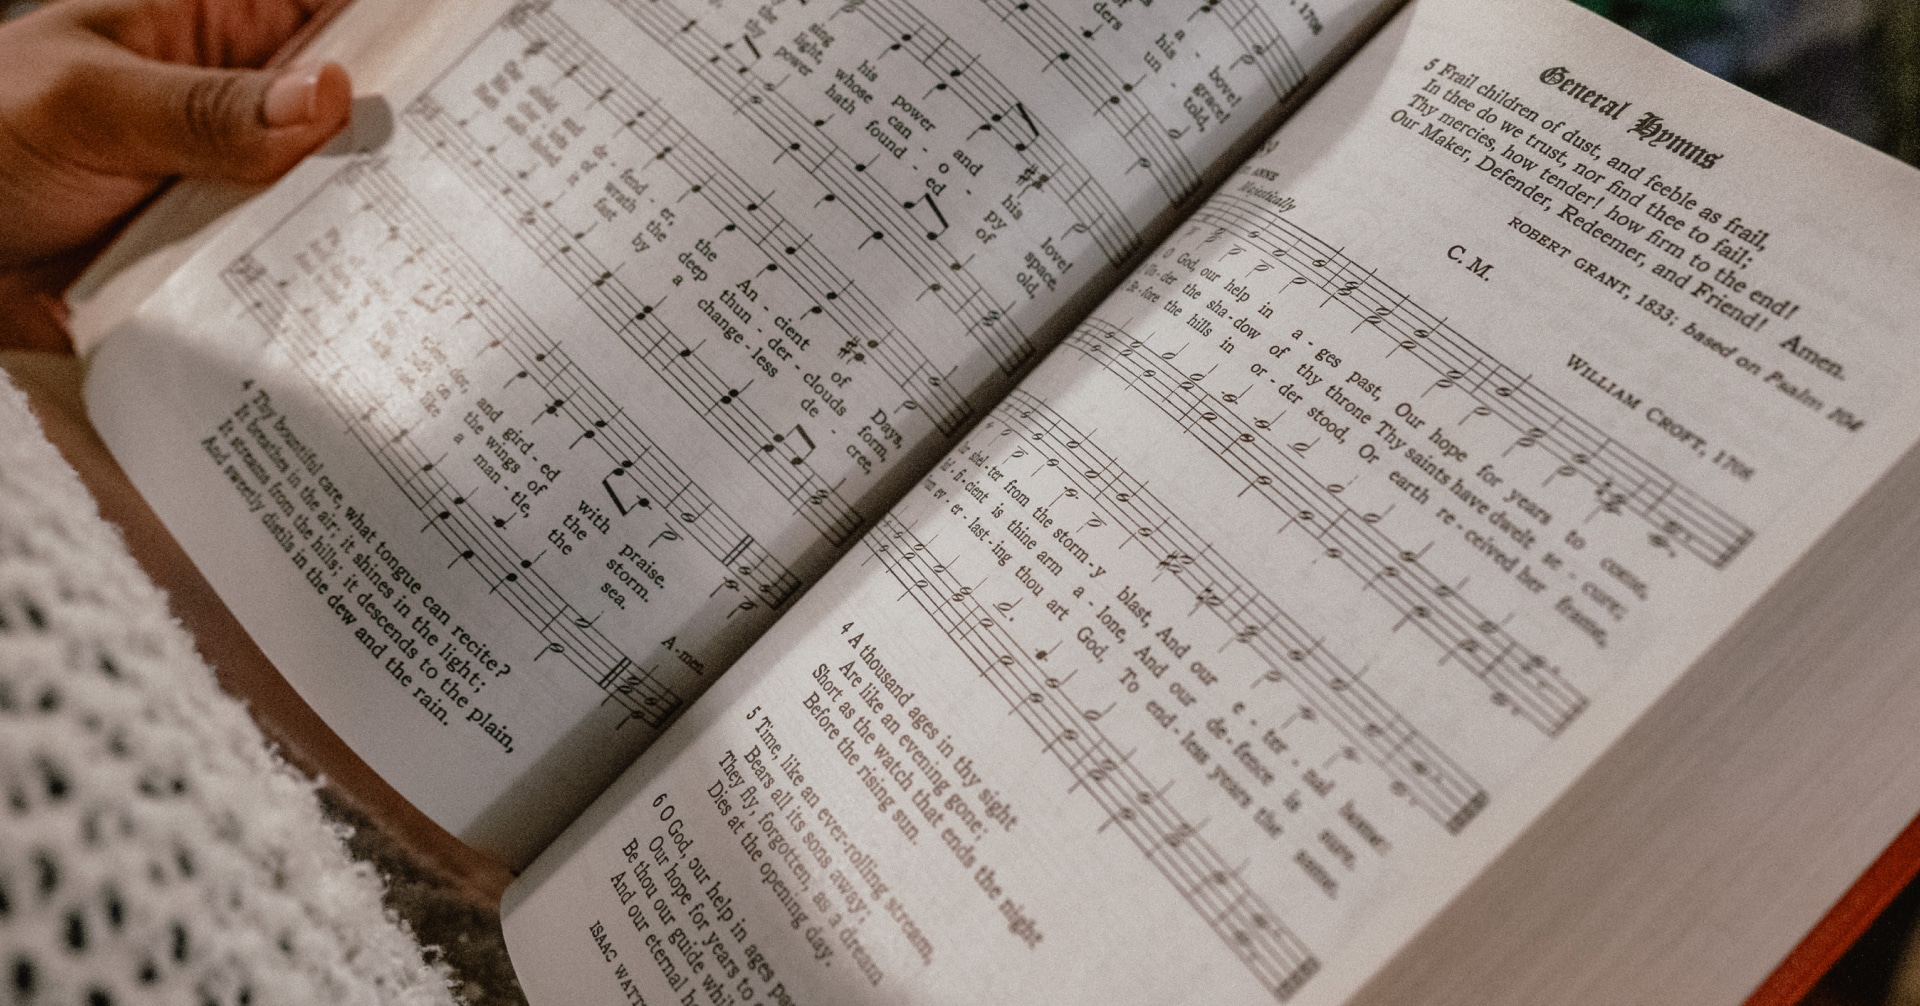 , 1708
the
thy
sing
light,
power
his
whose
hath
power
can -
found -
and
o -
ed
his
py
of
love!
space,
old,
of
ders
a -
his
un -
bove!
grace!
told,
fend -
wrath
fast
er,
the
by
the
deep
a
An - cient
thun - der -
change - less
of
clouds
de -
Days,
form,
cree,
and gird - ed
the wings of
like a man - tle,
with praise.
the storm.
the sea.
A-men.
4 Thy bountiful care, what tongue can recite?
It breathes in the air; it shines in the light;
It streams from the hills; it descends to the plain,
And sweetly distils in the dew and the rain.
General Hymns
5 Frail children of dust, and feeble as frail,
In thee do we trust, nor find thee to fail;
Thy mercies, how tender! how firm to the end!
Our Maker, Defender, Redeemer, and Friend! Amen.
ROBERT GRANT, 1833; based on Psalm 104
ANNE
C. M.
WILLIAM CROFT, 1708
Majestically
O God, our help in a - ges past, Our hope for years to come,
Un-der the sha-dow of thy throne Thy saints have dwelt se - cure;
Be-fore the hills in or - der stood, Or earth re - ceived her frame,
shel-ter from the storm - y blast, And our e - ter - nal home:
fi - cient is thine arm a - lone, And our de - fence is sure.
ev - er - last - ing thou art God, To end - less years the same.
4 A thousand ages in thy sight
Are like an evening gone;
Short as the watch that ends the night
Before the rising sun.
5 Time, like an ever-rolling stream,
Bears all its sons away;
They fly, forgotten, as a dream
Dies at the opening day.
6 O God, our help in ages
Our hope for years to
Be thou our guide
And our eternal
ISAAC